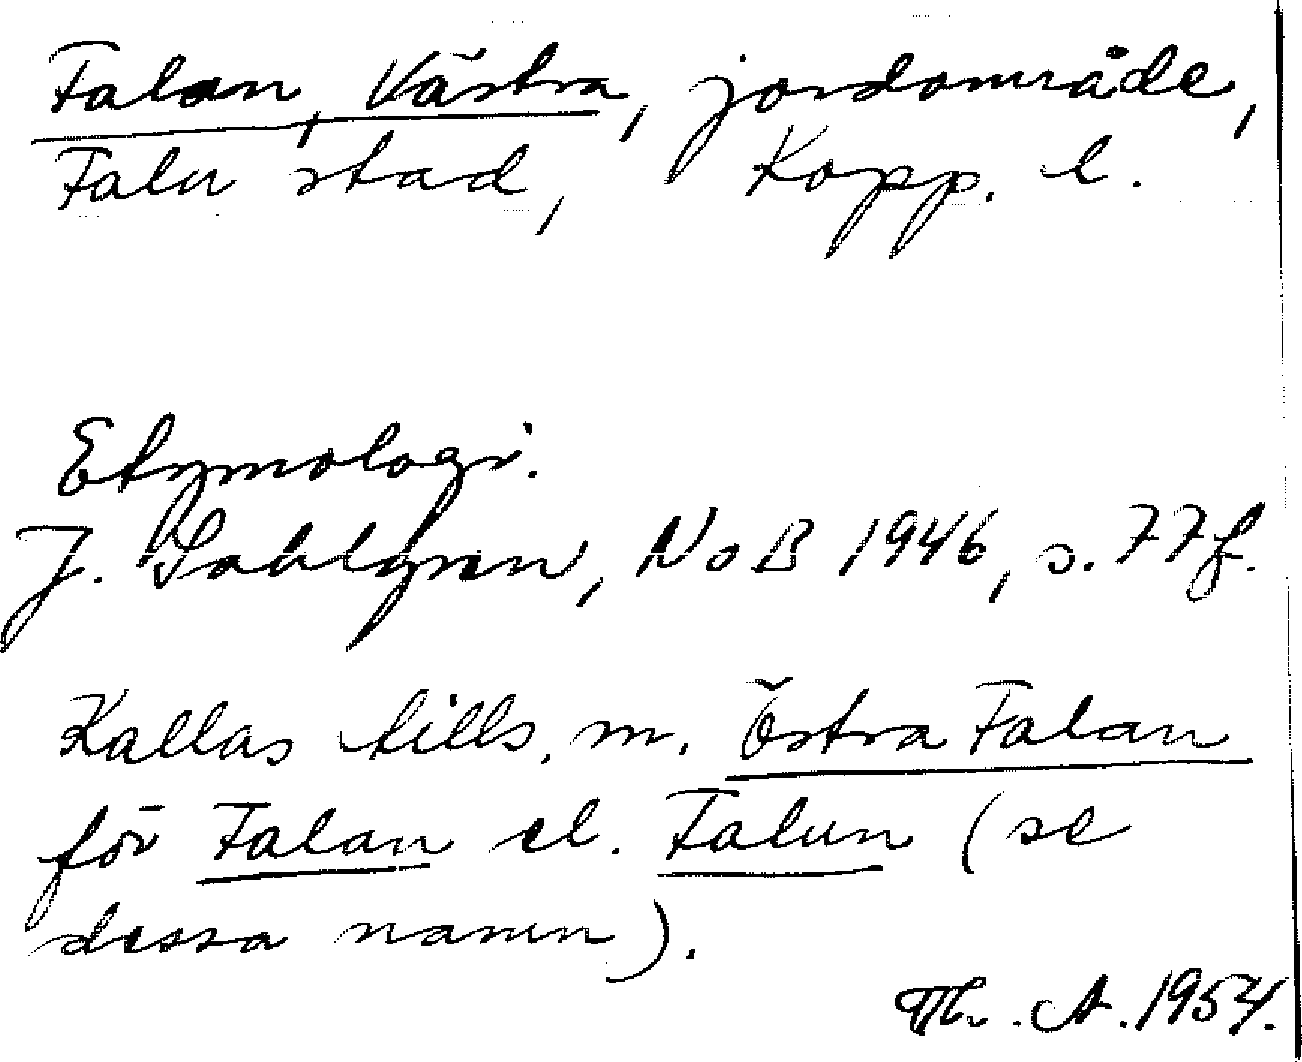 Falan, Västra, jordområde,
Falu stad, Kopp. l.
Etymologi.
J. Sahlgren, NoB 1946, s. 77 f.
Kallas tills. m. Östra Falan
för Falan el. Falun (se
dessa namn).
Th. A. 1954.